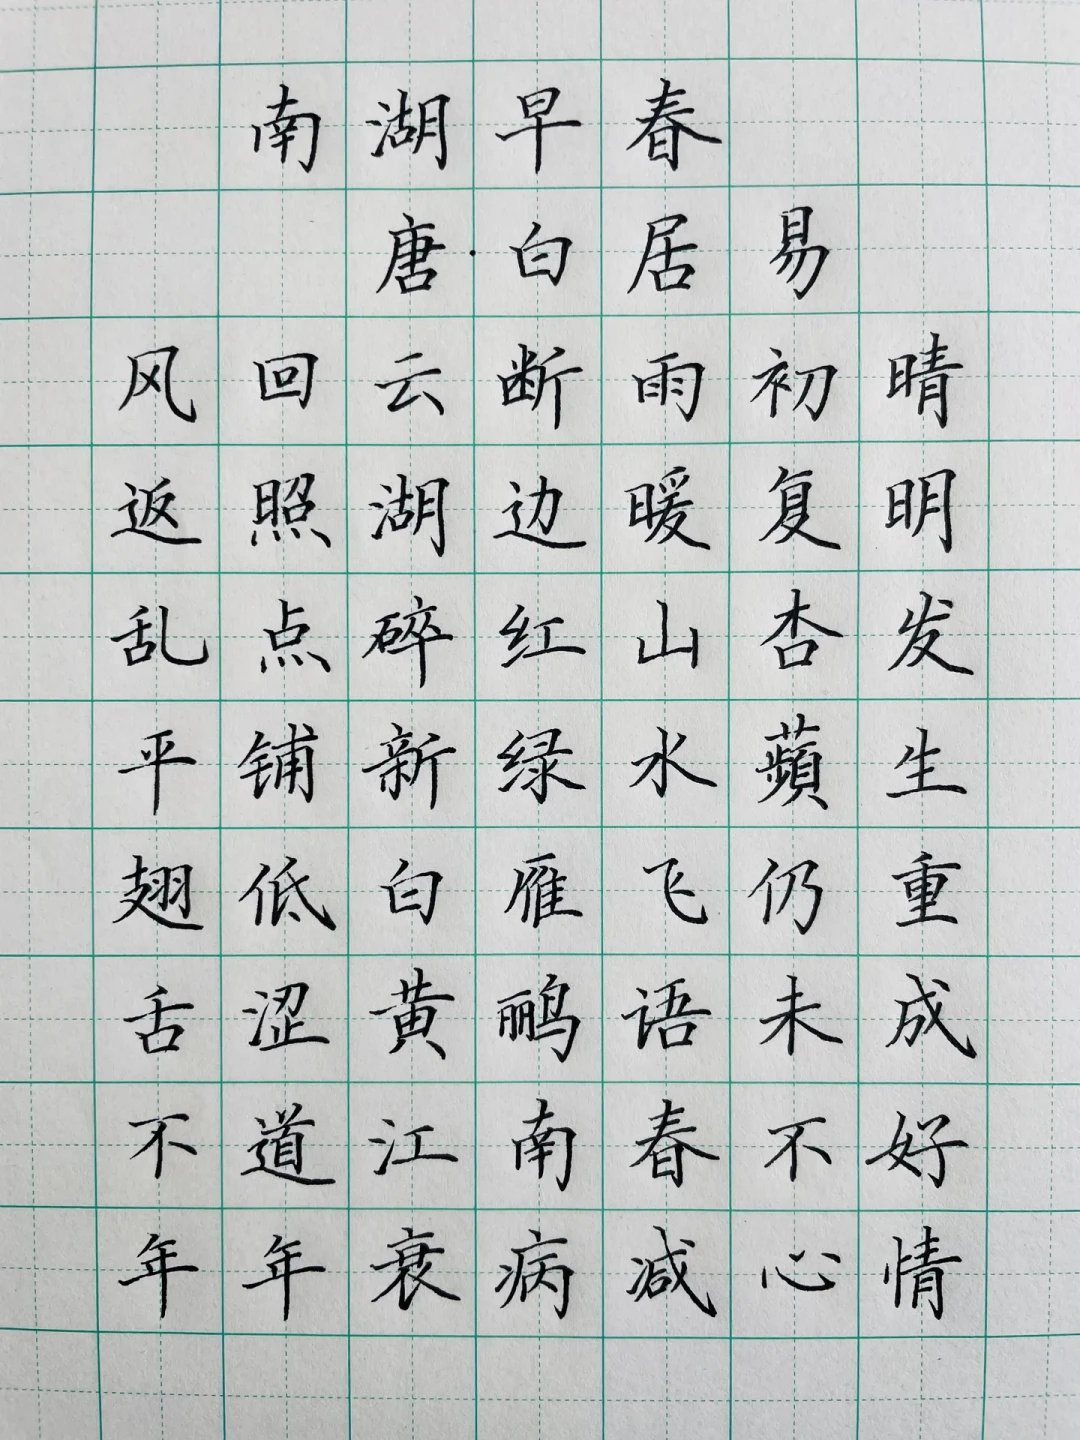 南湖早春
唐·白居易
风回云断雨初晴
返照湖边暖复明
乱点碎红山杏发
平铺新绿水蘋生
翅低白雁飞仍重
舌涩黄鹂语未成
不道江南春不好
年年衰病减心情